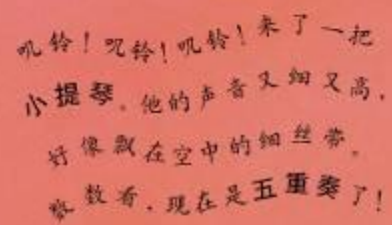 叽铃！叽铃！叽铃！来了一把
小提琴。他的声音又细又高，
好像飘在空中的细丝带。
数数看，现在是五重奏了！